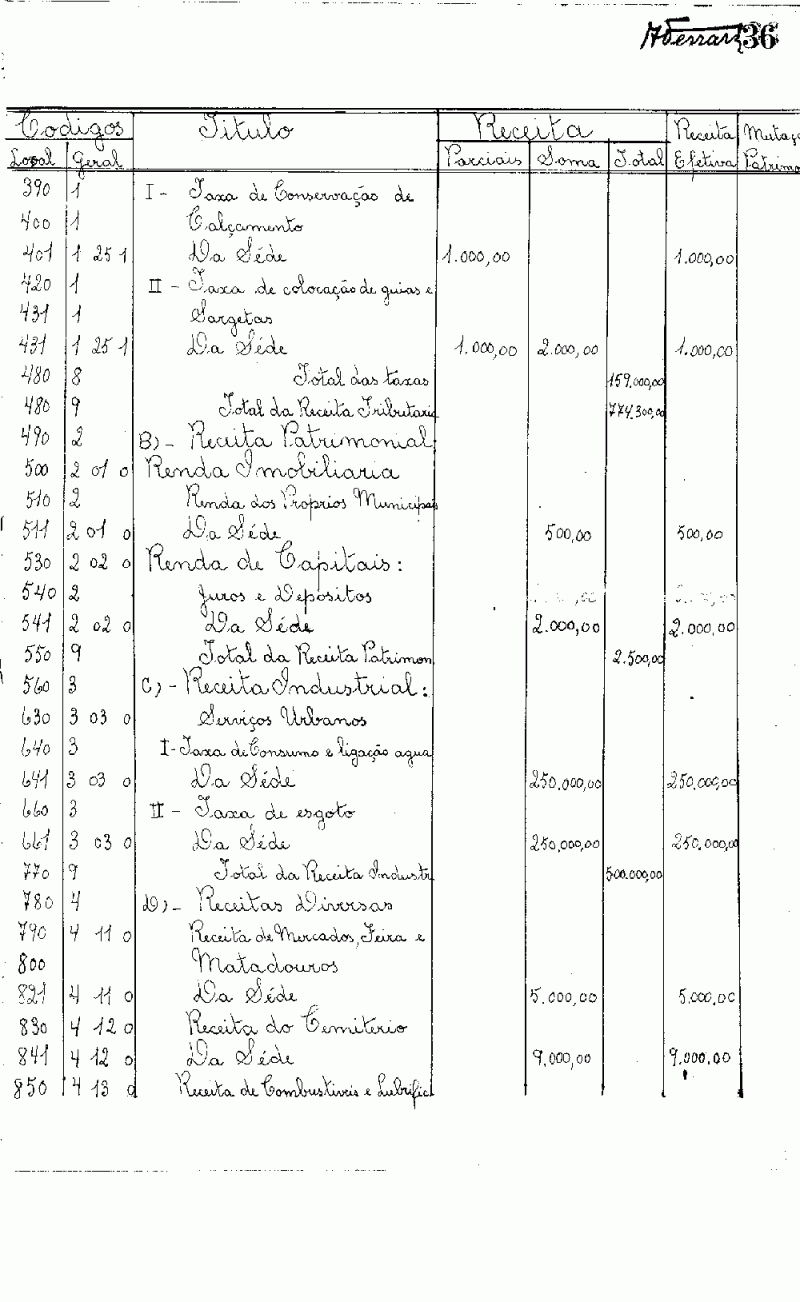 36
Codigos Titulo Receita Receita Mutaç
Local Geral Parciais Soma Total Efetiva Patrimo
390 1 I - Taxa de Conservação de
400 1 Calçamento
401 1 25 1 Da Séde 1.000,00 1.000,00
420 1 II - Taxa de colocação de guias e
431 1 Sargetas
431 1 25 1 Da Séde 1.000,00 2.000,00 1.000,00
480 8 Total das taxas 159.000,00
480 9 Total da Receita Tributaria 774.300,00
490 2 B) - Receita Patrimonial
500 2 01 0 Renda Imobiliaria
510 2 Renda dos Proprios Municipais
511 2 01 0 Da Séde 500,00 500,00
530 2 02 0 Renda de Capitais:
540 2 Juros e Depositos
541 2 02 0 Da Séde 2.000,00 2.000,00
550 9 Total da Receita Patrimon 2.500,00
560 3 C) - Receita Industrial:
630 3 03 0 Serviços Urbanos
640 3 I - Taxa de Consumo e ligação agua
641 3 03 0 Da Séde 250.000,00 250.000,00
660 3 II - Taxa de esgoto
661 3 03 0 Da Séde 250,000,00 250.000,00
770 9 Total da Receita Industr 500.000,00
780 4 D) - Receitas Diversas
790 4 11 0 Receita de Mercados, Feira e
800 Matadouros
821 4 11 0 Da Séde 5.000,00 5.000,00
830 4 12 0 Receita do Cemiterio
841 4 12 0 Da Séde 9.000,00 9.000.00
850 4 13 0 Receita de Combustiveis e Lubrific